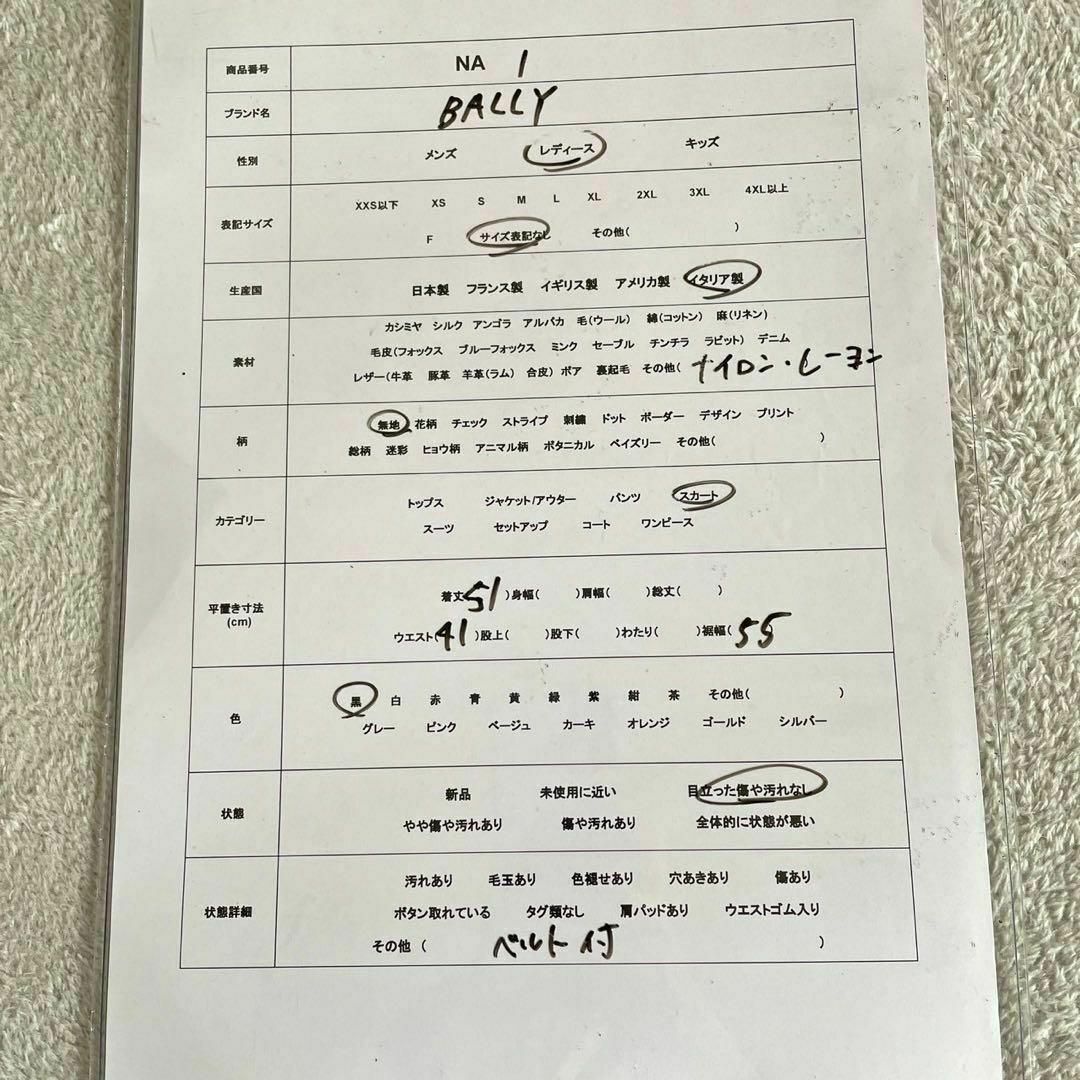 商品番号 NA 1
ブランド名 BALLY
性別 メンズ レディース キッズ
XXS以下 XS S M L XL 2XL 3XL 4XL以上
表記サイズ
F サイズ表記なし その他( )
生産国 日本製 フランス製 イギリス製 アメリカ製 イタリア製
カシミヤ シルク アンゴラ アルパカ 毛(ウール) 綿(コットン) 麻(リネン)
素材 毛皮(フォックス ブルーフォックス ミンク セーブル チンチラ ラビット) デニム
レザー(牛革 豚革 羊革(ラム) 合皮) ボア 裏起毛 その他( ナイロン・レーヨン
無地 花柄 チェック ストライプ 刺繍 ドット ボーダー デザイン プリント
柄
総柄 迷彩 ヒョウ柄 アニマル柄 ボタニカル ペイズリー その他( )
トップス ジャケット/アウター パンツ スカート
カテゴリー
スーツ セットアップ コート ワンピース
着丈 51 )身幅( )肩幅( )総丈( )
平置き寸法
(cm)
ウエスト( 41 )股上( )股下( )わたり( )裾幅( 55 )
黒 白 赤 青 黄 緑 紫 紺 茶 その他( )
色
グレー ピンク ベージュ カーキ オレンジ ゴールド シルバー
新品 未使用に近い 目立った傷や汚れなし
状態
やや傷や汚れあり 傷や汚れあり 全体的に状態が悪い
汚れあり 毛玉あり 色褪せあり 穴あきあり 傷あり
状態詳細 ボタン取れている タグ類なし 肩パッドあり ウエストゴム入り
その他 ( ベルト付 )